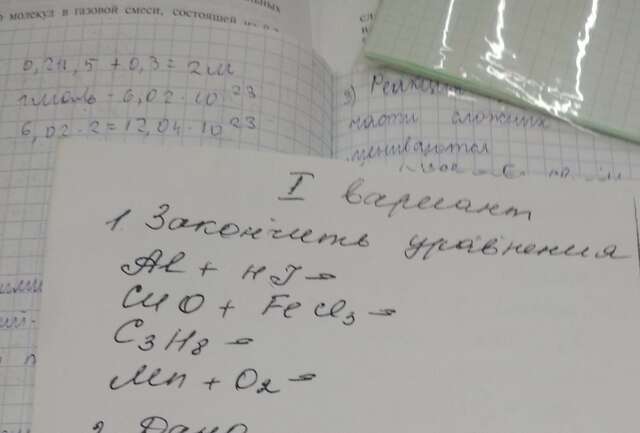 молекул в газовой смеси, состоящей
0,2+1,5+0,3=2м
1моль=6,02·10²³
6,02·2=12,04·10²³
3) Реакции
части сложных
I вариант
1. Закончить уравнения
Al + HJ =
CuO + FeCl₃ =
C₃H₈ =
Mn + O₂ =
2. Дано